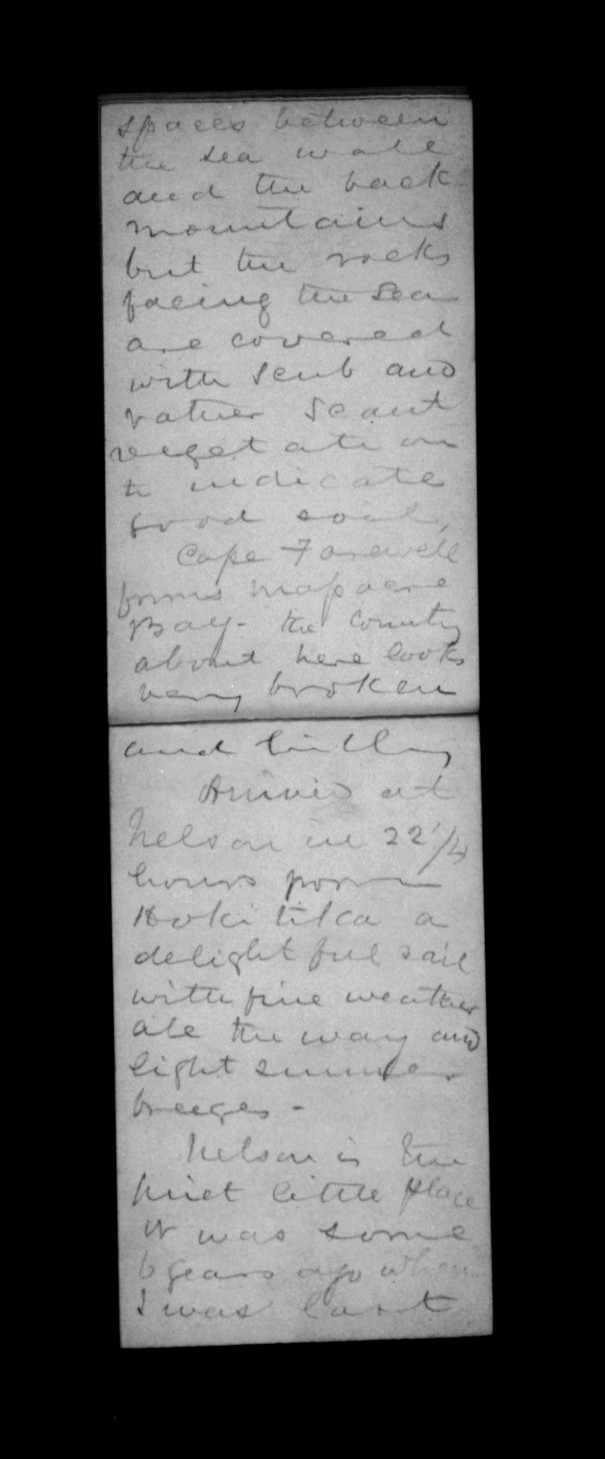 spaces between
the sea wall
and the back
mountains
but the rocks
facing the Sea
are covered
with scrub and
rather scant
vegetation
to indicate
good soil,
Cape Farewell
forms Massacre
Bay - the country
about here looks
very broken
and hilly
Arrived at
Nelson in 22 1/4
hours from
Hokitika a
delightful sail
with fine weather
all the way and
light summer
breezes -
Nelson is the
quiet little place
it was some
6 years ago when
I was last